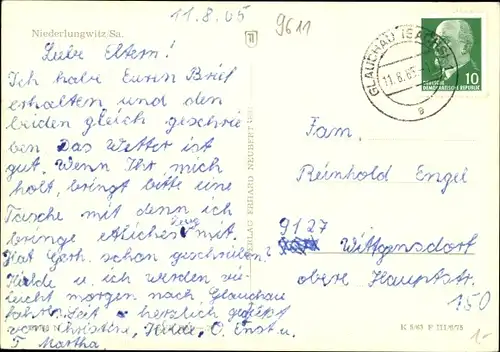 11.8.65
9611
Niederlungwitz/Sa.
Liebe Eltern!
Ich habe Euren Brief
erhalten und den
beiden gleich geschrie
ben. Das Wetter ist
gut. Wenn Ihr mich
holt, bringt bitte eine
Tasche mit denn ich
bringe etliches mit.
Hat Gerh. schon geschrieben?
Heide u. ich werden vie
leicht morgen nach Glauchau
fahren. Seit herzlich gegrüßt
von Christine, Heide, O. Ernst u.
T. Martha.
VERLAG ERHARD NEUBERT
GLAUCHAU (SACHS)
11.8.65
DEUTSCHE
DEMOKRATISCHE REPUBLIK
10
Fam.
Reinhold Engel
9127
Wittgensdorf
obere Hauptstr.
150
1-